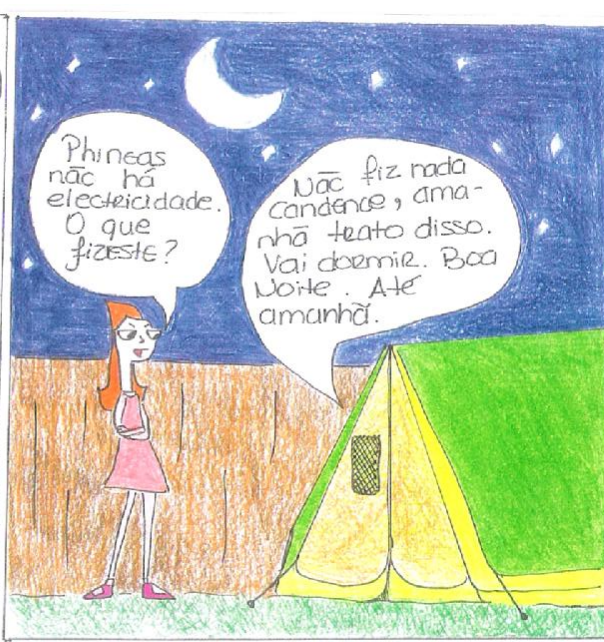 Phineas
não há
electricidade.
O que
fizeste?
Não fiz nada
Candence, ama-
nhã trato disso.
Vai dormir. Boa
Noite. Até
amanhã.